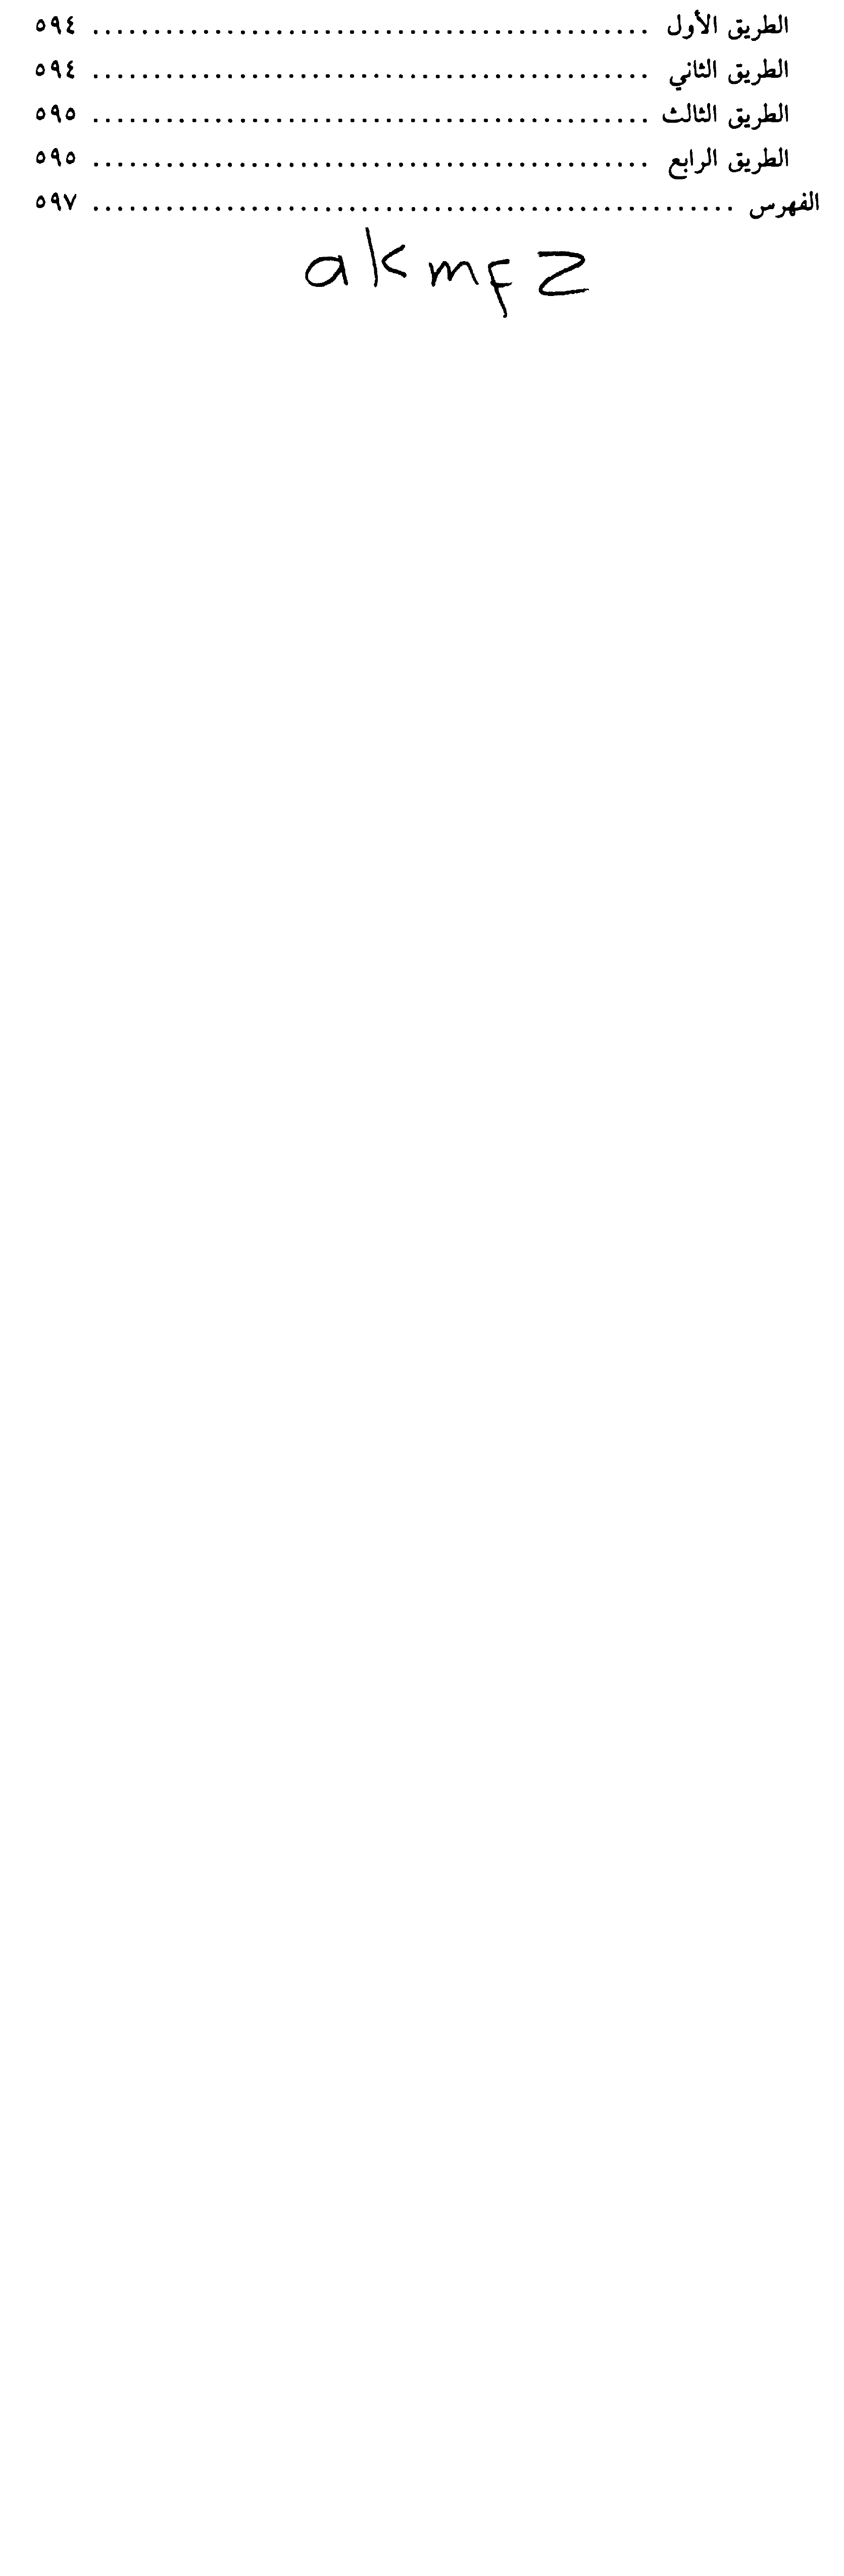 الطريق الأول .............................................. ٥٩٤
الطريق الثاني .............................................. ٥٩٤
الطريق الثالث .............................................. ٥٩٥
الطريق الرابع .............................................. ٥٩٥
الفهرس ..................................................... ٥٩٧
akmfz